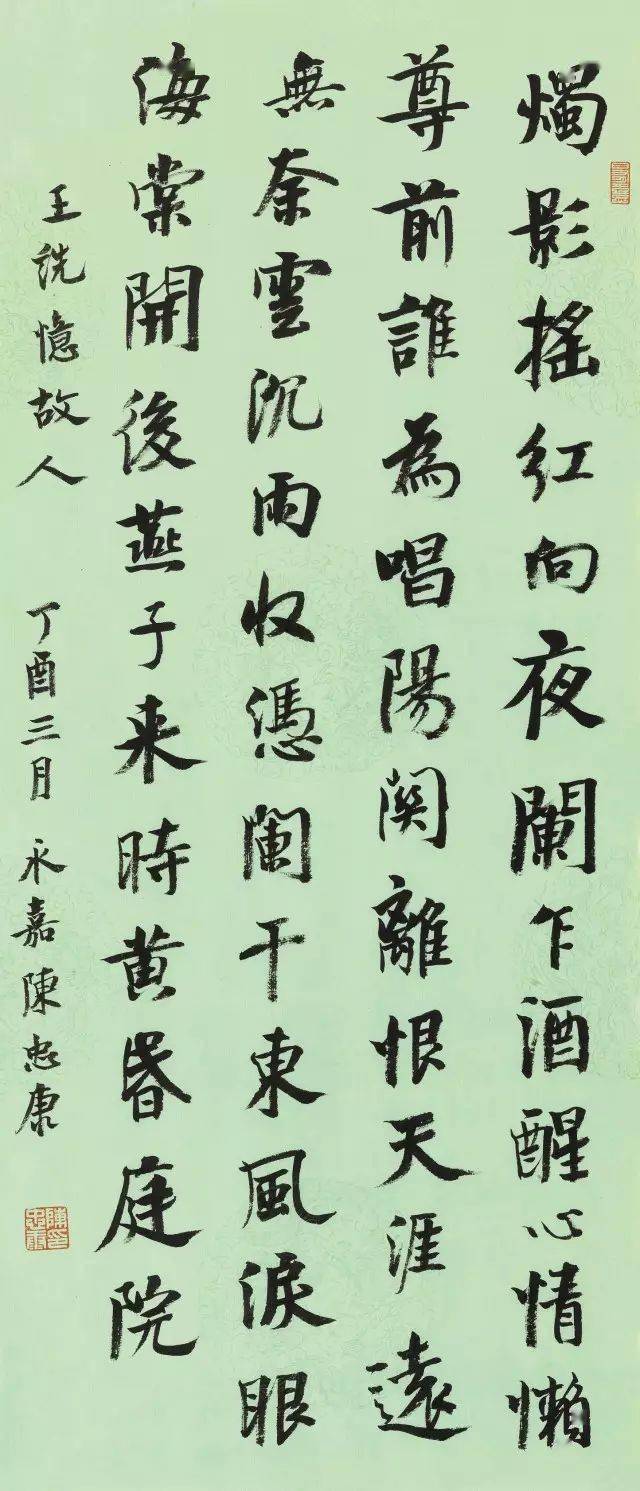 燭影搖紅向夜闌乍酒醒心情懶
尊前誰為唱陽関離恨天涯遠
無奈雲沉雨收憑闌干東風淚眼
海棠開後燕子来時黄昏庭院
王詵憶故人 丁酉三月 永嘉陳忠康